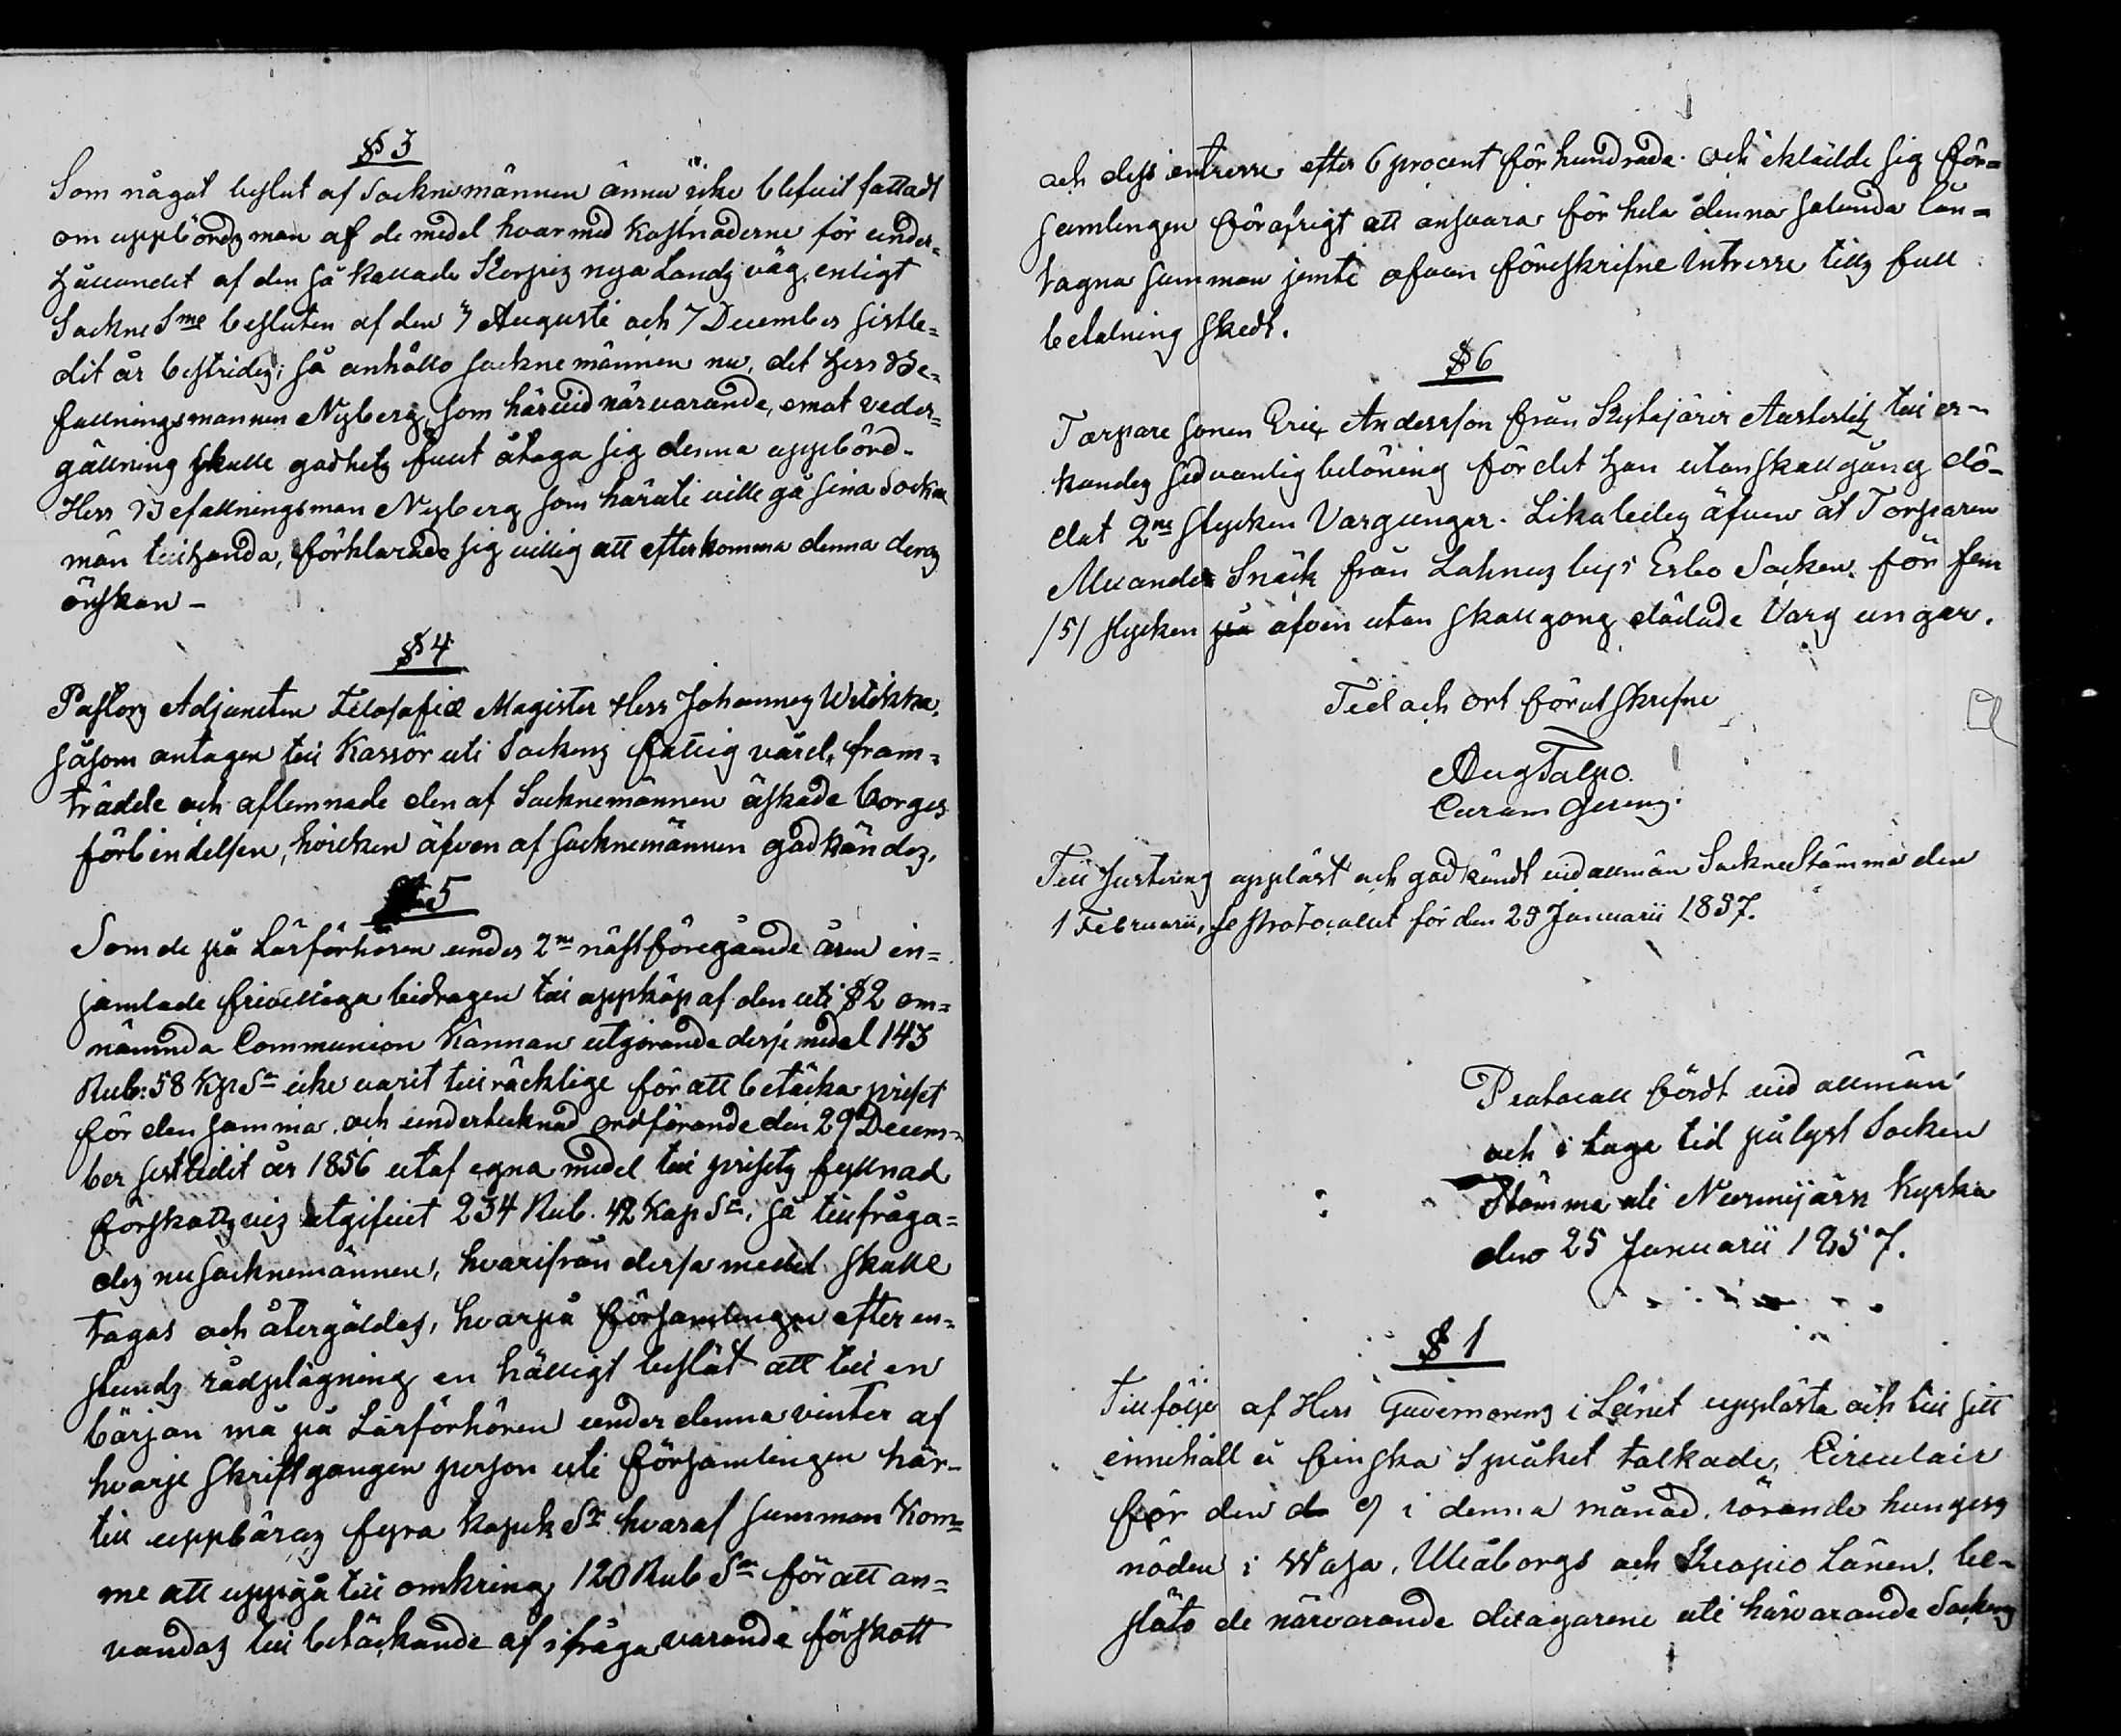 § 3
Som något beslut af Socknemännen ännu icke blifvit fattadt
om uppbördsman af de medel hvarmed kostnaderne för under-
hållandet af den så kallade Korpis nya Landsväg, enligt
Sockne Sme besluten af den 3 Augusti och 7 December sistle-
dit år bestrides; så anhöllo socknemännen nu, det Herr Be-
fallningsmannen Nyberg, som härvid närvarande, emot veder-
gällning skulle godhets fullt åtaga sig denna uppbörd.
Herr Befallningsman Nyberg som häruti ville gå sina Sockne
män tillhanda, förklarade sig villig att efterkomma denna deras
önskan -
§ 4
Pastors Adjuncten Filosofiæ Magister Herr Johannes Wilskka,
såsom antagen till Kassör uti Sockens fattig vård, fram-
trädde och aflemnade den af Socknemännen äskade borges
förbindelsen, hvilken äfven af Socknemännen godkändes.
§ 5
Som de på Läsförhören under 2ne nästföregående åren in-
samlade frivilliga bidragen till uppköp af den uti § 2 om-
nämnda Communion Kannan utgörande desse medel 143
Rub: 58 Kp Sr icke varit tillräcklige för att betäcka priset
för den samma, och undertecknad ordförande den 29 Decem-
ber sistledit år 1856 utaf egna medel till prisets fyllnad
förskottsvis utgifvit 234 Rub. 42 Kop Sr, så tillfråga-
des nu Socknemännen, hvarifrån dessa medel skulle
tagas och återgäldas, hvarpå församlingen efter en-
stunds rådplägning en hälligt beslöt att till en
början må på Läsförhören under denna vinter af
hvarje skriftgongen person uti församlingen här-
till uppbäras fyra kopek Sr hvaraf summan kom-
me att uppgå till omkring 120 Rub Sr för att an-
vändas till betäckande af ifråga varande förskott
och dess intresse efter 6 procent för hundrade. Och iklädde sig för-
samlingen för öfrigt att ansvara för hela denna sålunda lån-
tagna summan jemte ofvan föreskrifne Intresse tills full
betalning skedt.
§ 6
Torpare sonen Eric Andersson från Kytäjärvi Austerlitz till er-
kändes sedvanlig belöning för det han utan skallgång dö-
dat 2ne stycken Vargungar. Likaledes äfven åt Torparen
Alexander Snäck från Lahnus by i Esbo Socken, för fem
/5/ stycken på äfven utan skallgong dödade Varg ungar.
Tid och ort förutskrifne
Aug Talpo.
Curam Gerens.
Till justering uppläst och godkändt vid allmän Sockne Stämma den
1 Februarii, se Protocollet för den 25 Januarii 1857.
Protocoll fördt vid allmän
och i laga tid pålyst Socken
Stämma uti Nurmijärvi Kyrka
den 25 Januarii 1857.
§ 1
Tillfölje af Herr Guvernörens i Länet upplästa och till sitt
innehåll å finska språket tolkade, Circulair
för den d 9 i denna månad, rörande hungers
nöden i Wasa, Uleåborgs och Kuopio Länen, be-
slöto de närvarande delägarene uti härvarande Sockens